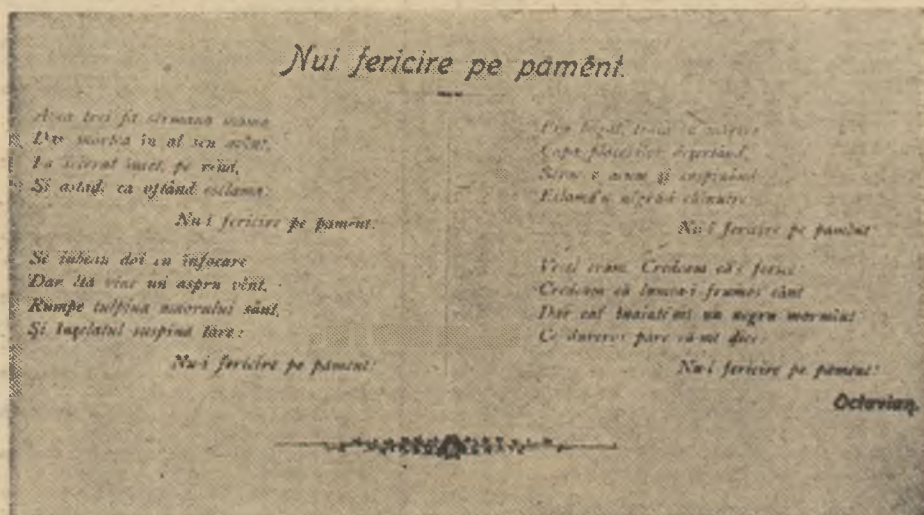 Nui fericire pe pamênt.
Avea trei fii sermana mama
Dar mortea in al seu avînt,
I-a scierat incet, pe rênd,
Și astadi ca oftând esclama:
Nu-i fericire pe pamênt!
Se iubeau doi cu infocare
Dar êta vine un aspru vênt,
Rumpe tulpina amorului sânt,
Și înșelatul suspină tare:
Nu-i fericire pe pamênt!
bogat, traia in
Cupa plăcerilor deșertând
Serac e acum și suspinând
Eclamă'n nigrul
Nu-i fericire pe pamênt
Vesel eram. Credeam că-s ferice
Credeam că lumea-i frumos cânt
Dar cat înainte-mi un negru mormînt
Ce dureros pare că-mi dice:
Nu-i fericire pe pamênt!
Octavian.